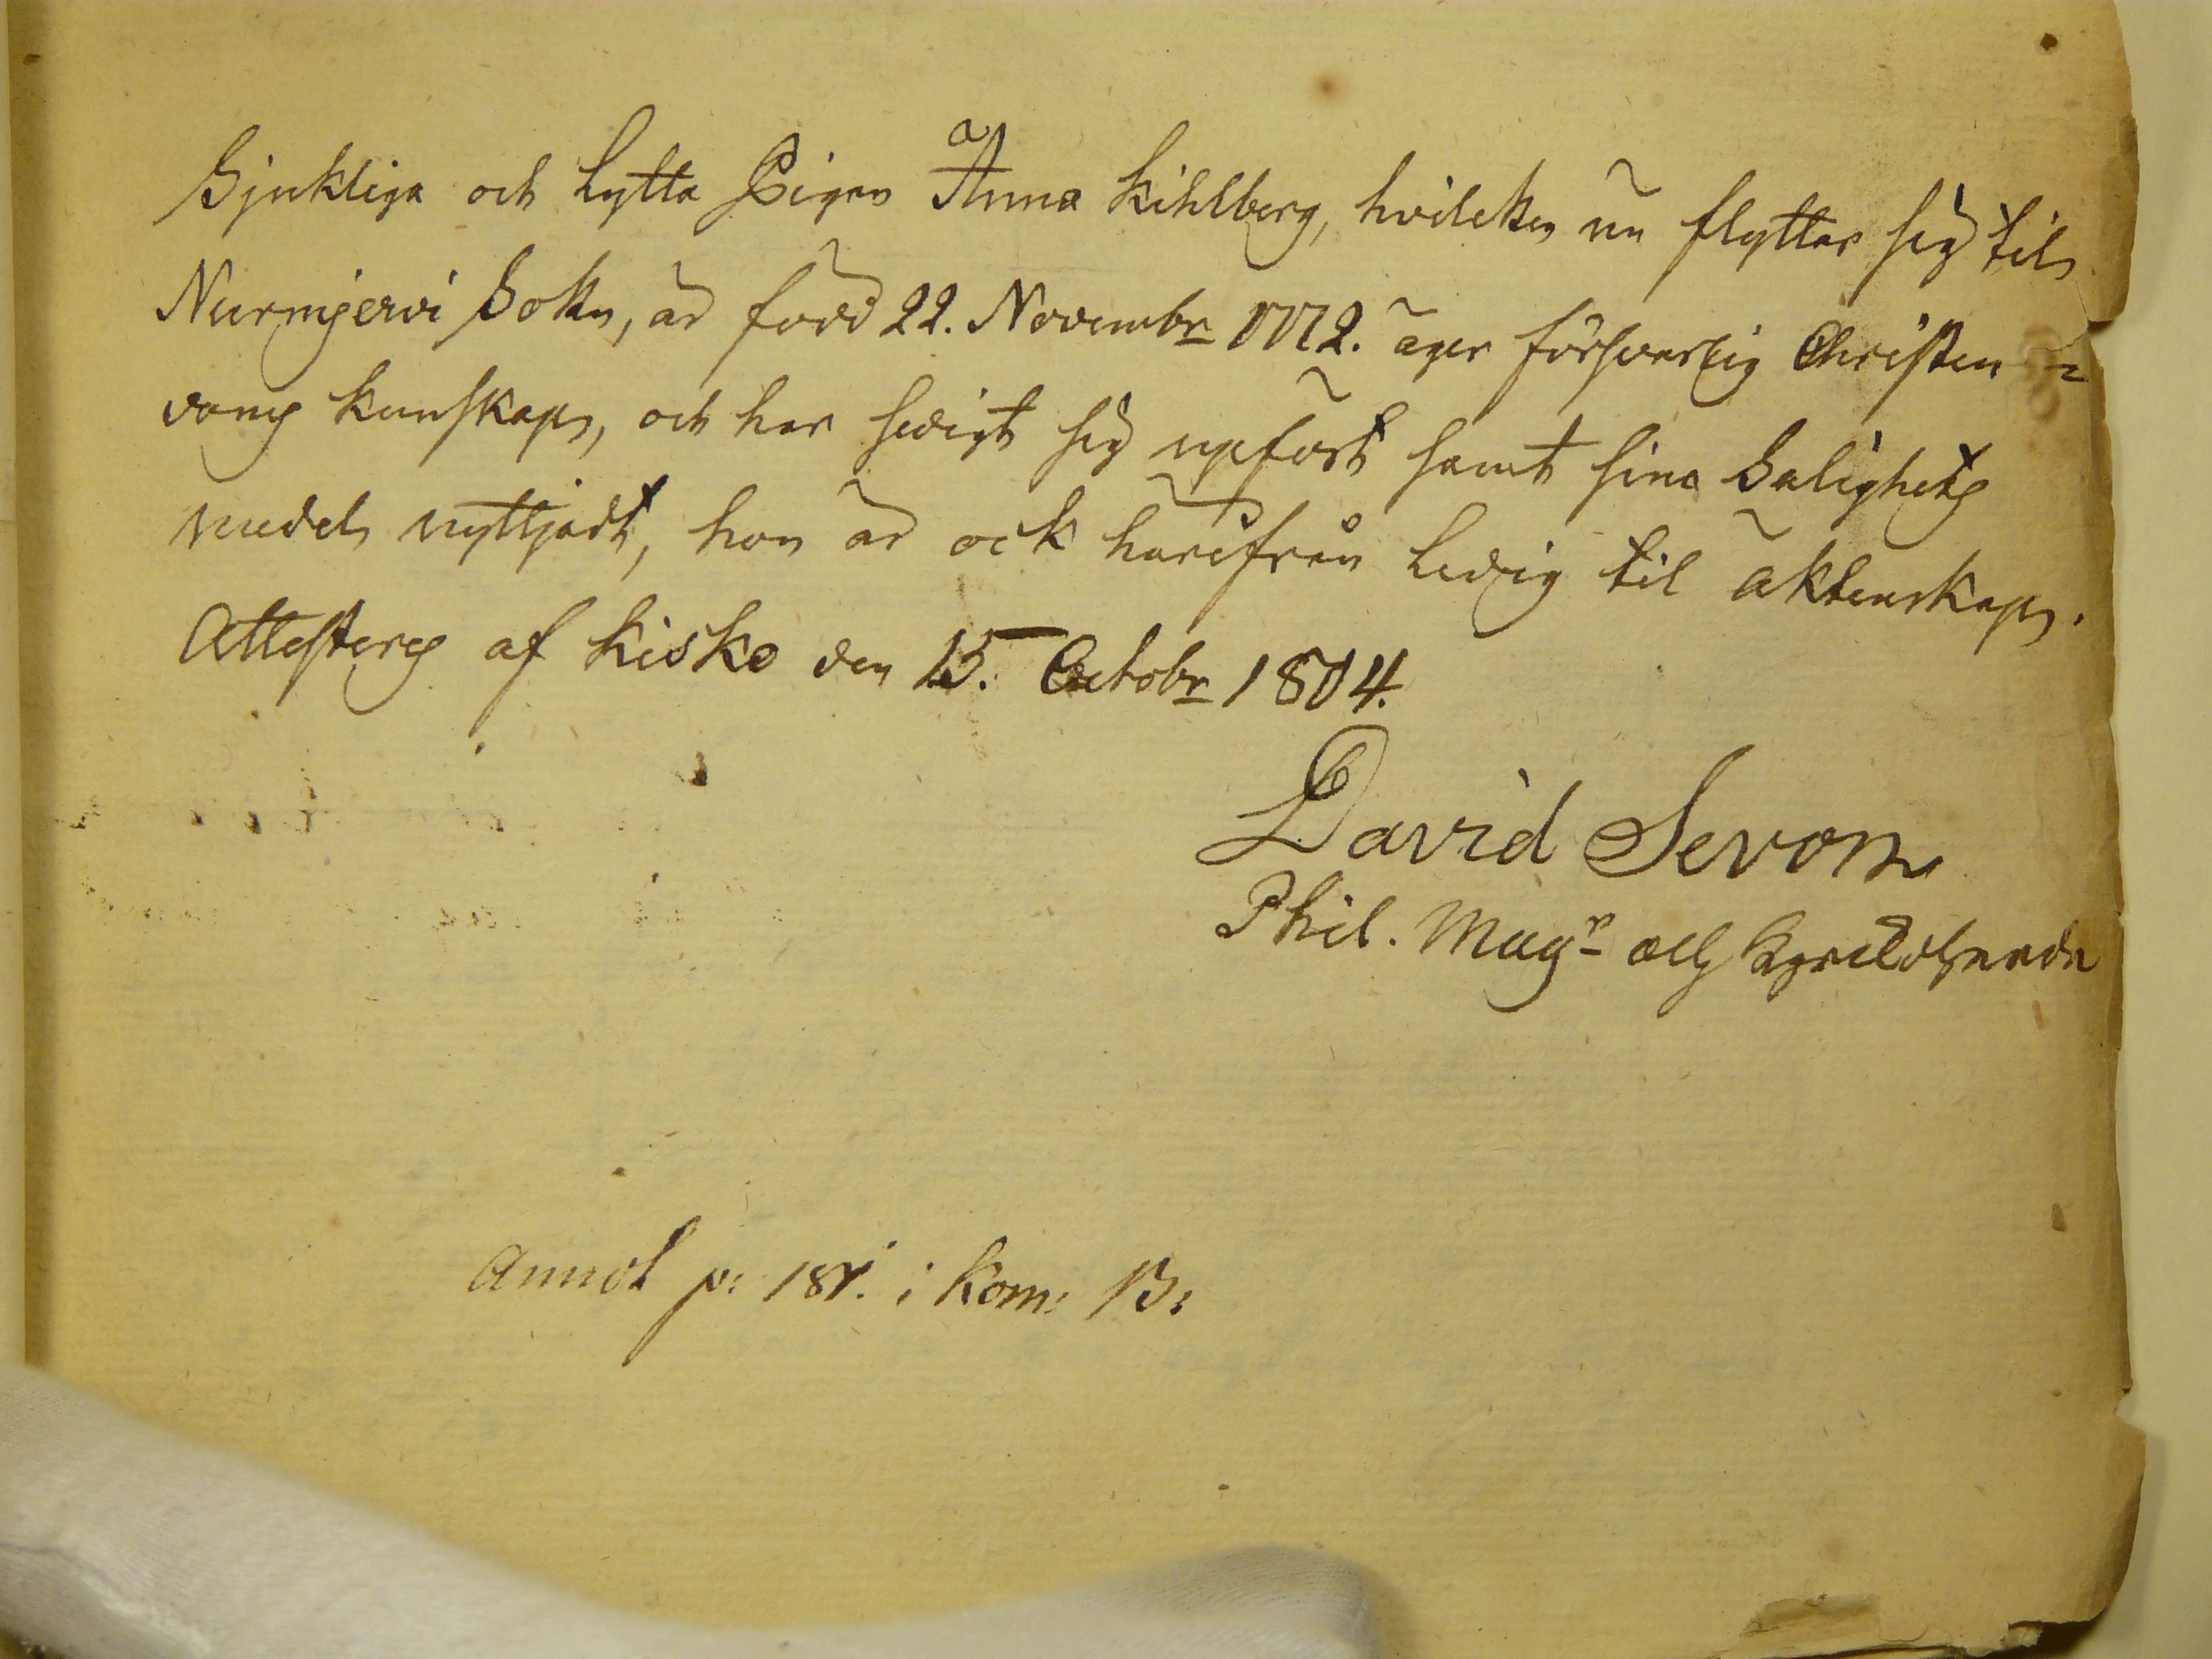 Sjukliga och Lytta Pigan Anna Kihlberg, hvilcken nu flyttar sig til
Nurmjervi Sokn, är född 22. Novembr 1772. äger försvarlig Christen=
doms kunskap, och har sedigt sig upfört samt sina Salighets
medel nyttjadt, hon är ock härifrån Ledig til äktenskap.
Attesteras af Kisko den 15. Octobr 1804.
David Sevon
Phil. Mag:r och
Annot p: 181. i Kom: B: